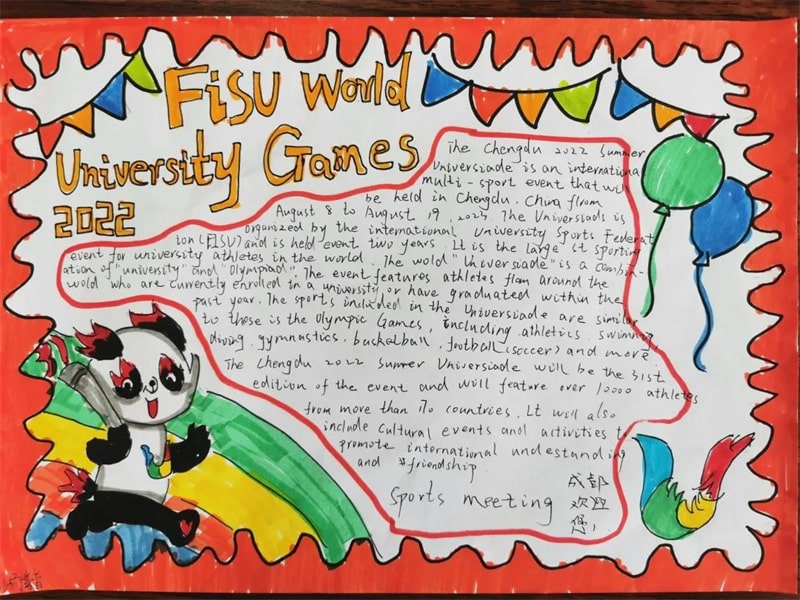 FiSU World
University Games
2022
The Chengdu 2022 Summer
Universiade is an internationa
multi-sport event that will
be held in Chengdu. China from
August 8 to August 19, 2023. The Universiads is
organized by the international University Sports Federat
ion (FISU) and is held event two years. It is the large st sporting
event for university athletes in the world. The wold "Universiade" is a combin-
ation of "university" and "olympiad". The event features athletes flam around the
wold who are currently enrolled in a university or have graduated within the
past year. The sports included in the Universiade are similar
to those is the Olympic Games, including athletics. swimming.
diving. gymnastics. basketball. football (soccer) and more.
The Chengdu 2022 summer Universiade will be the 31st
edition of the event and will feature over 10000 athletes
from more than 170 countries. It will also
include cultural events and activities to
promote international undestanding
and friendship.
Sports meeting
成都
欢迎
您!